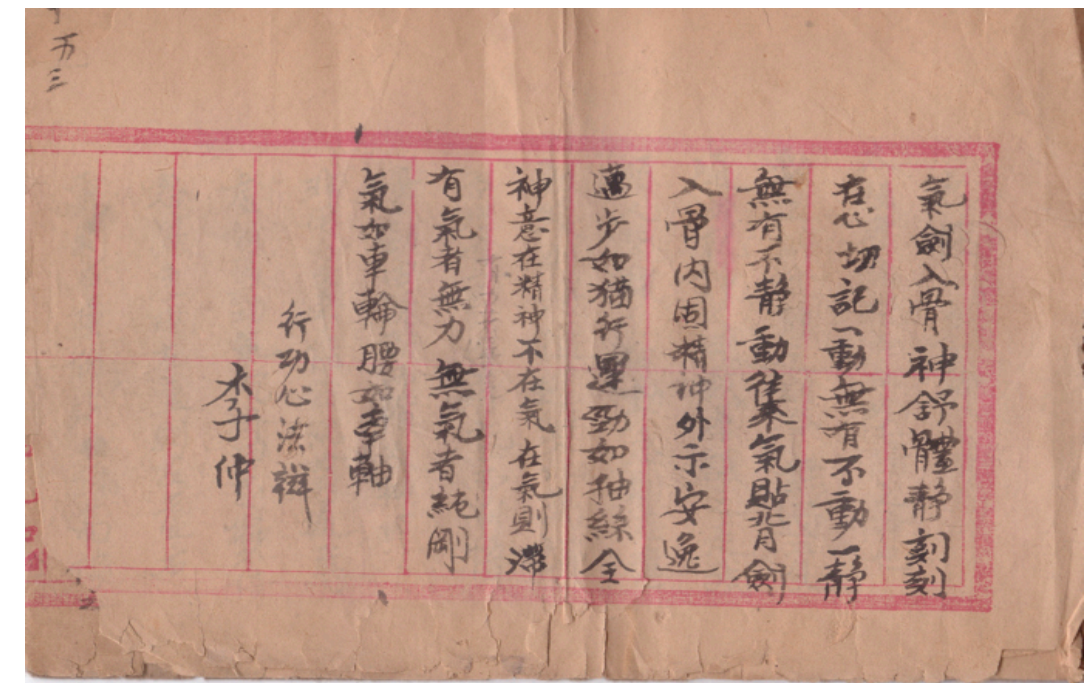 氣劍入骨神舒體静刻刻
在心切記一動無有不動一静
無有不静動往來氣貼背劍
入骨内固精神外示安逸
邁步如猫行運勁如抽絲全
神意在精神不在氣在氣則滯
有氣者無力無氣者純剛
氣如車輪腰如車軸
行功心法
李子仲
万三